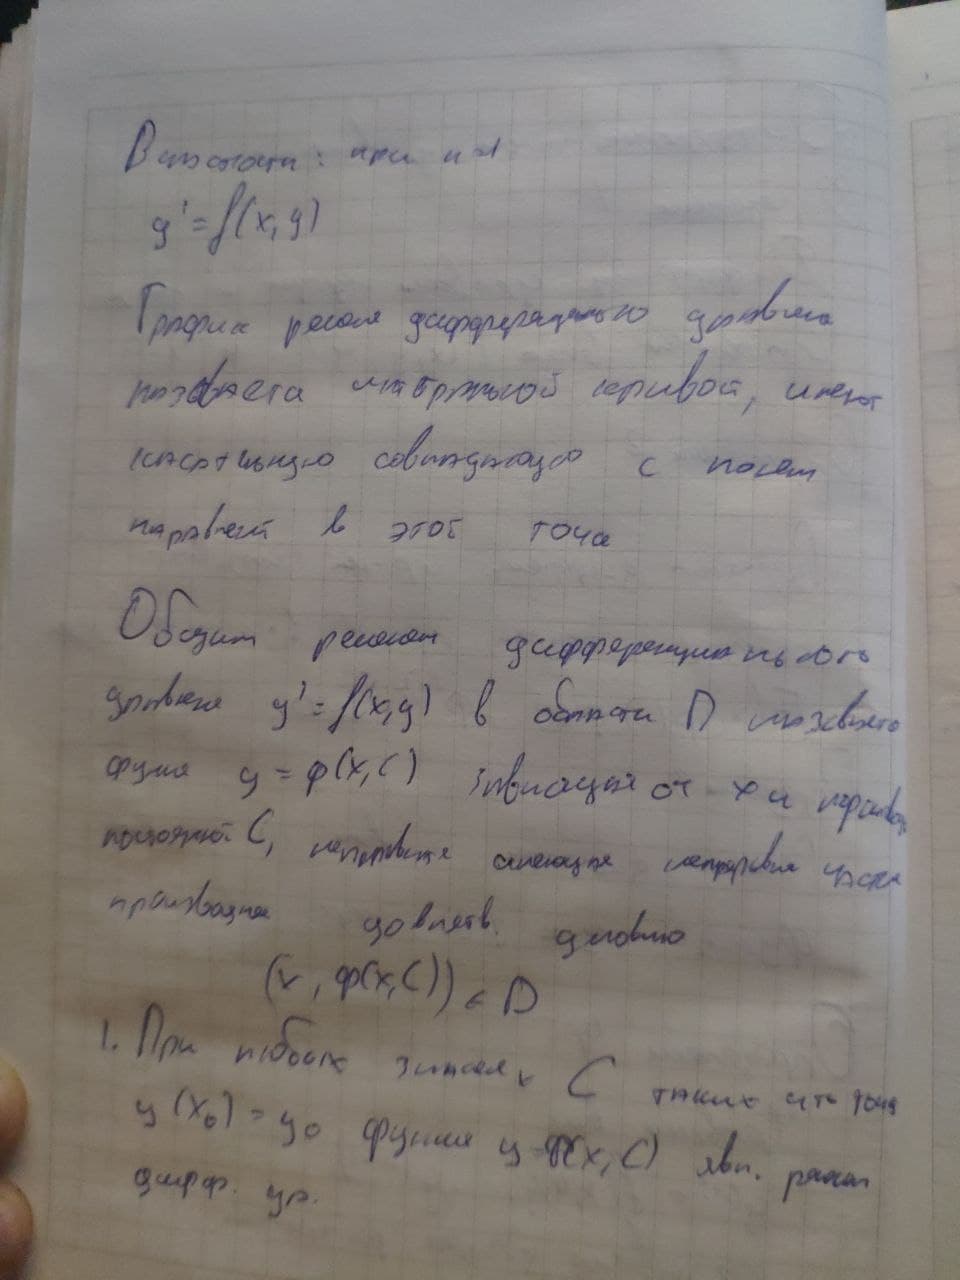 В частности: при n=1
y' = f(x, y)
График решения дифференциального уравнения
называется интегральной кривой, имеет
касательную совпадающую с полем
направлений в этой точке
Общим решением дифференциального
уравнения y' = f(x,y) в области D называется
функция y = φ(x,C) зависящая от x и произвол
постоянной C, непрерывная имеющая непрерывные частн
производные удовлетв. условию
(x, φ(x,C)) ∈ D
1. При любых значениях C таких что точка
y(x₀) = y₀ функция y=φ(x,C) явл. решен
дифф. ур.